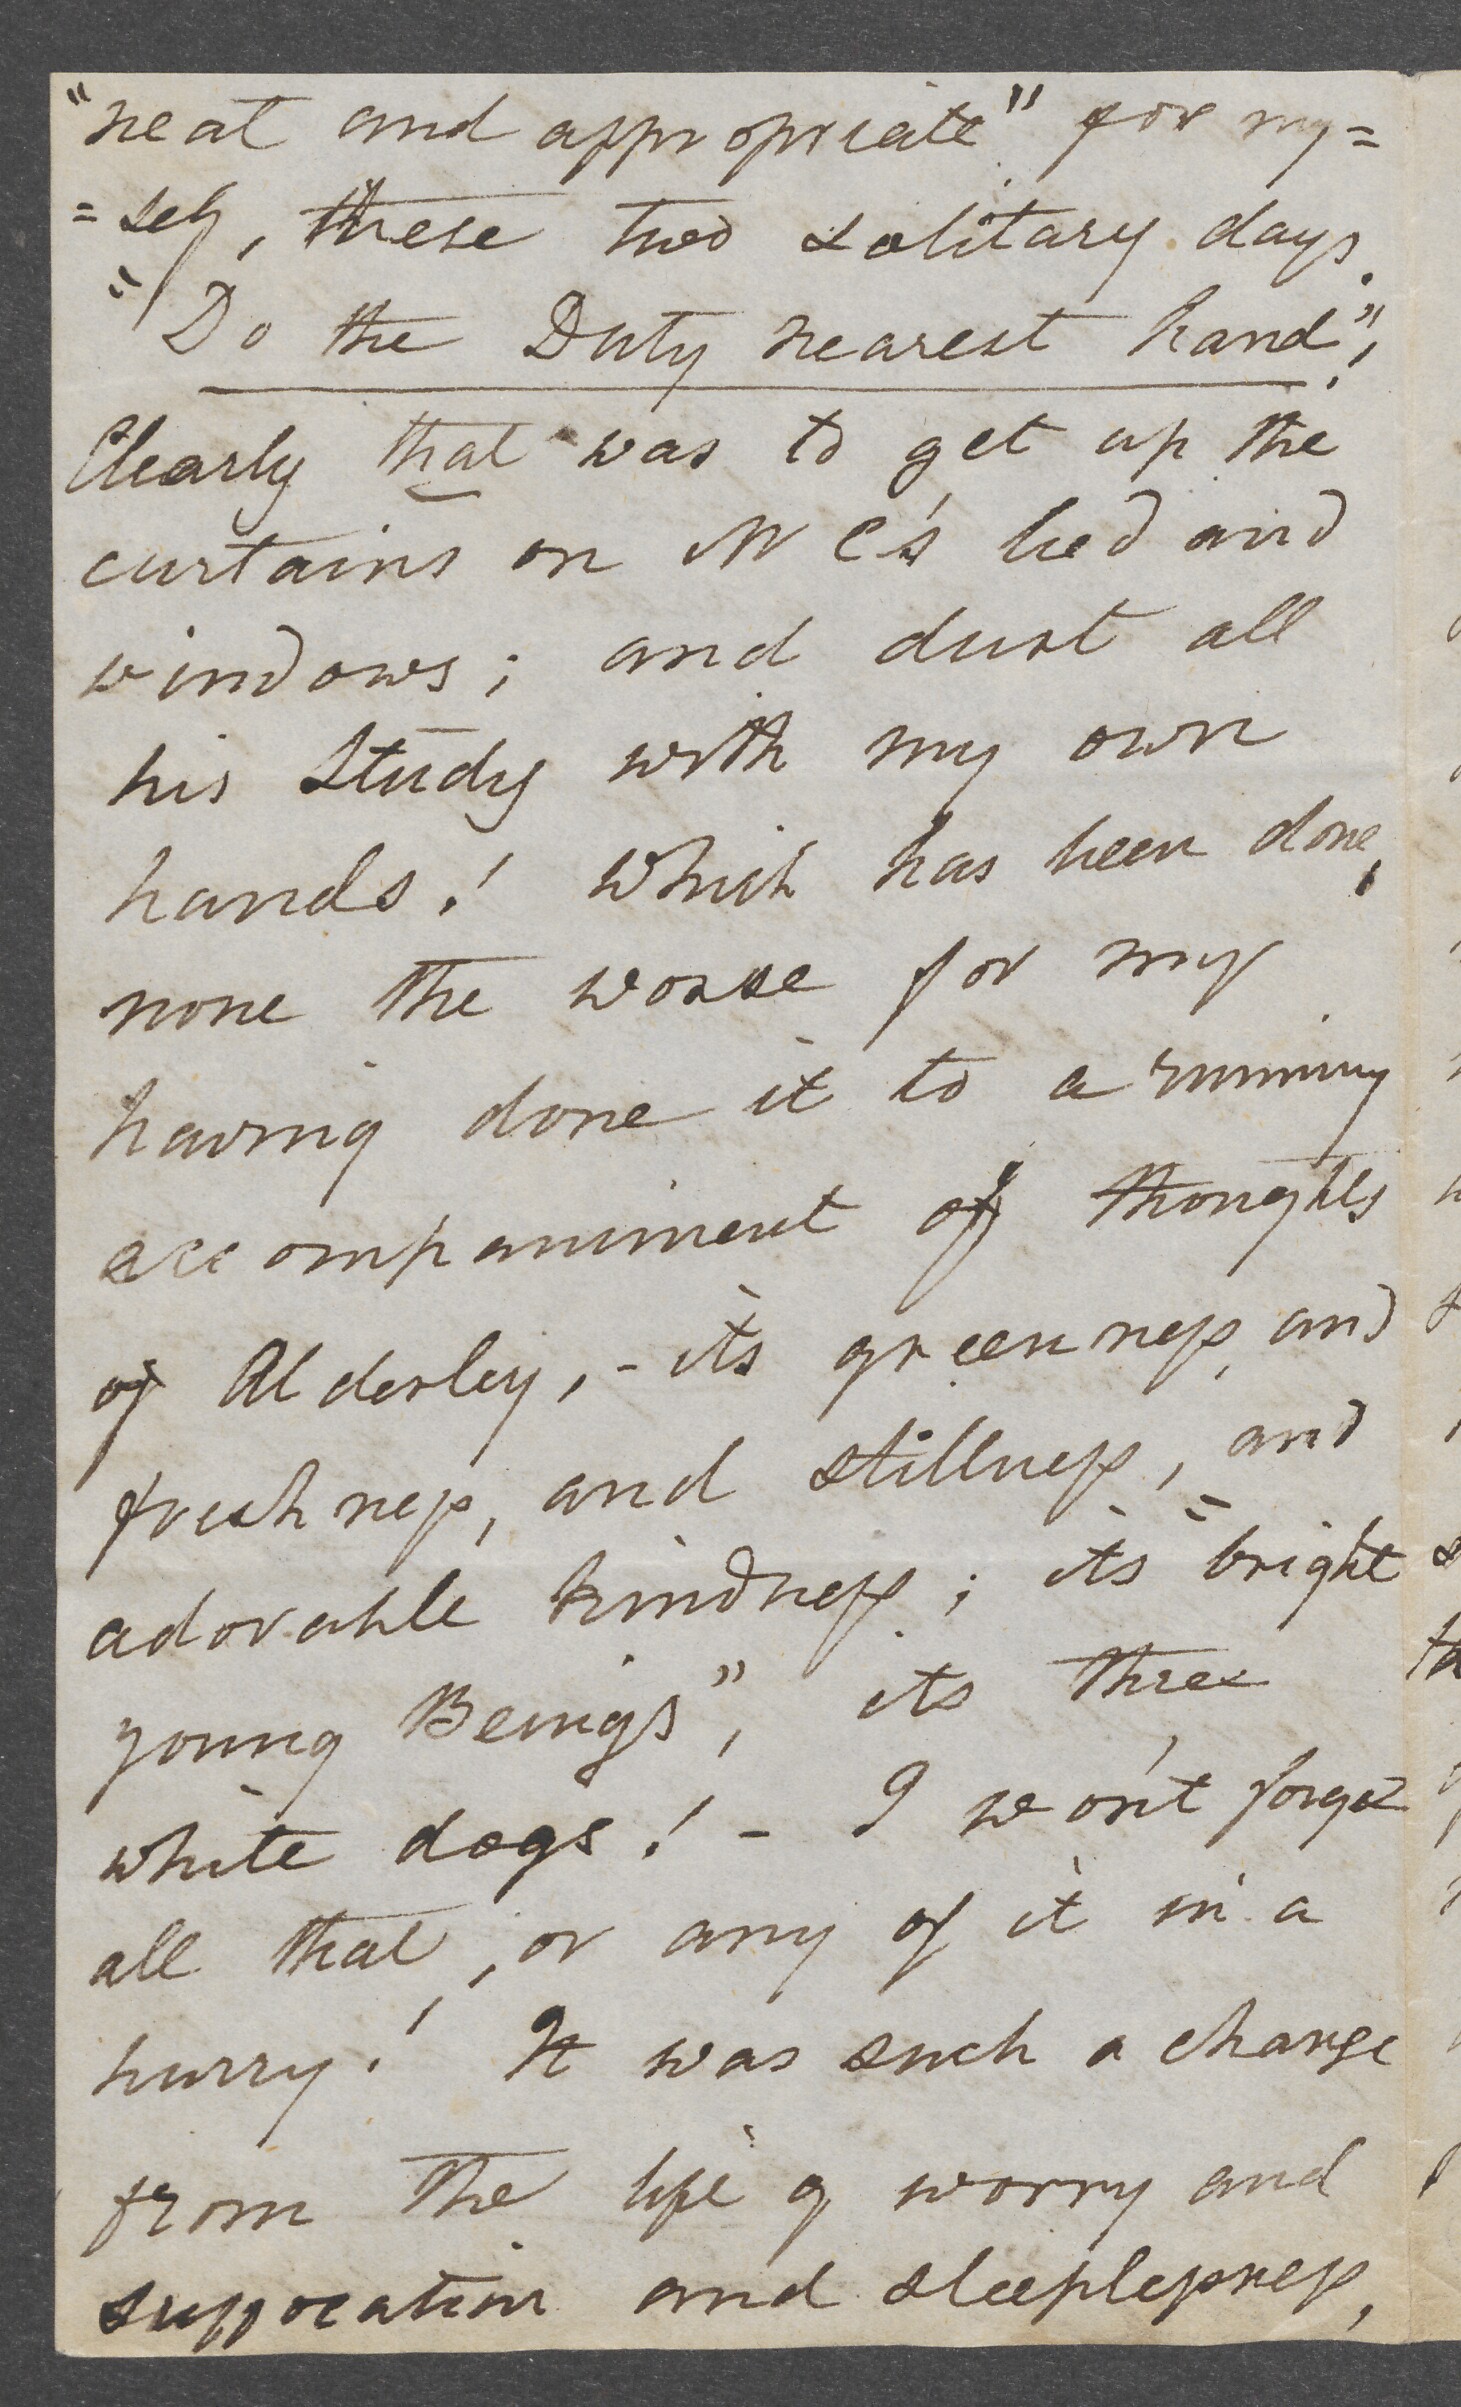 "neat and appropriate" for my=
=self, these two solitary days.
"Do the Duty nearest hand",!
Clearly that was to get up the
curtains on Mr C's bed and
windows; and dust all
his Study with my own
hands! Which has been done,
none the worse for my
having done it to a running
accompaniment of thoughts
of Alderley,- its greenness, and
freshness, and stillness, and
adorable kindness; its "bright
young Beings", its three
white dogs! - I won't forget
all that, or any of it in a
hurry! It was such a change
from the life of worry and
suffocation and sleeplessness,